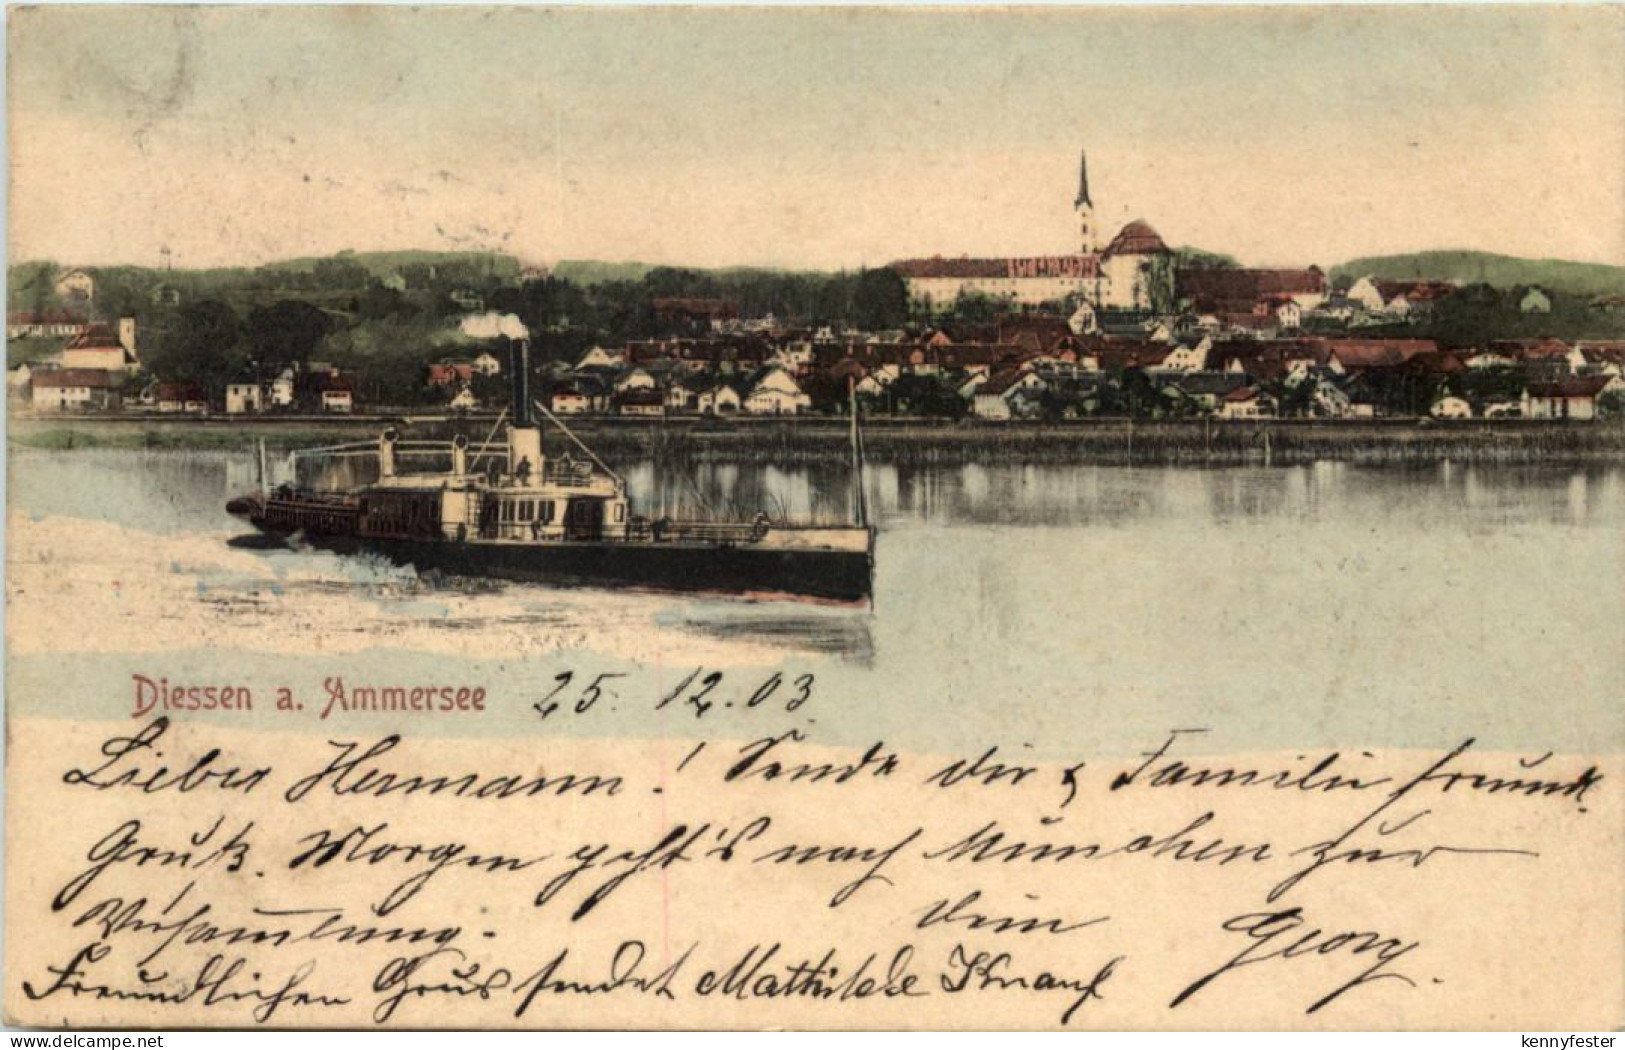 Diessen a. Ammersee 25. 12. 03
Lieber Hermann! Sende dir & Familie freundl.
Gruß. Morgen geht's nach München zur
Versammlung.
dein Georg.
Freundlichen Grus sendet Mathilde Knauf
delcampe.net
kennyfester